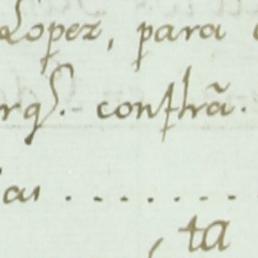 Lopez, para
rqs. contrã.
as . . . . . . . .
, ta